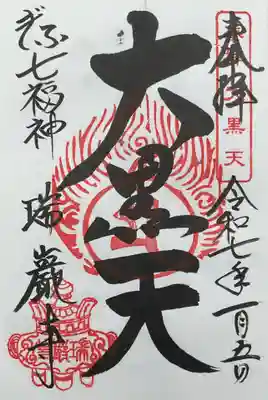 奉拝
黒天
令和七年一月五日
大黒天
ぎふ七福神
瑞巖寺
瑞巖